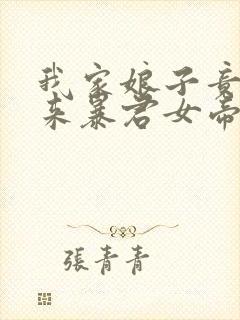 我家娘子竟
来暴君女帝
張青青